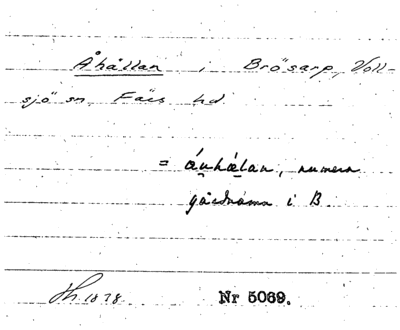 Åhållan i Brösarp, Voll-
sjö sn, Färs hd.
= áu̯hǽlan, numera
gårdnamn i B.
Th. 1878 Nr 5069.